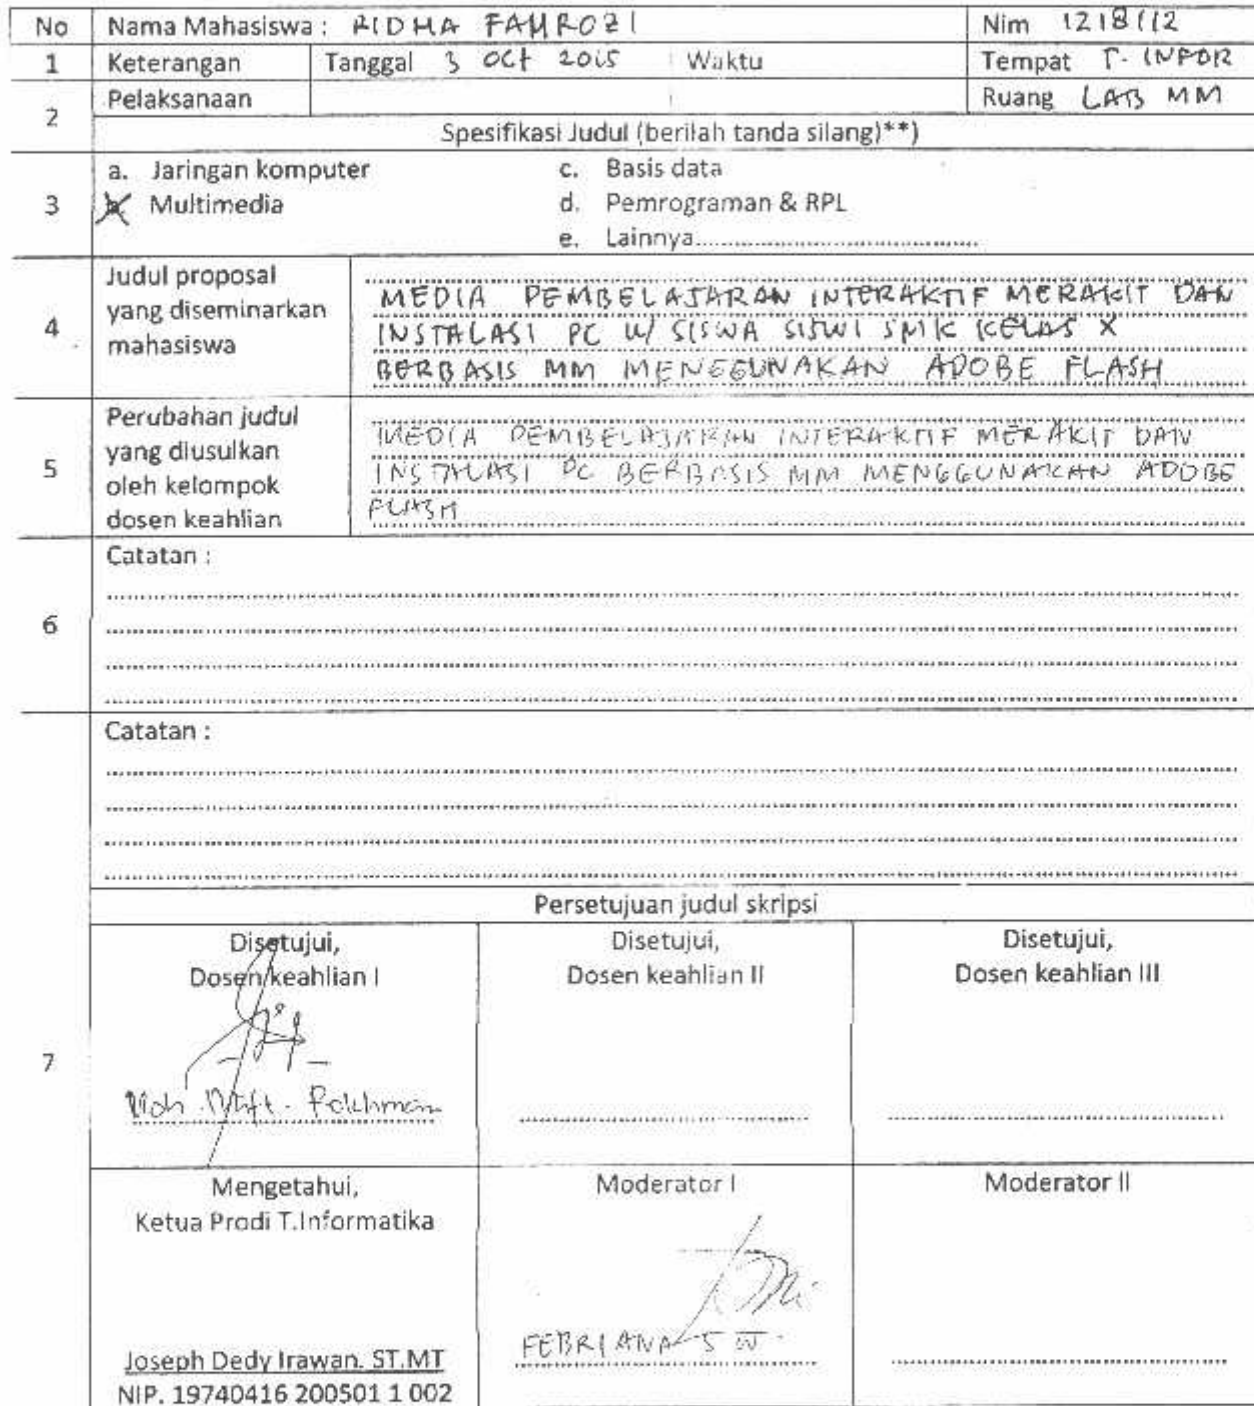 No Nama Mahasiswa : RIDHA FAHROZI Nim 1218112
1 Keterangan Tanggal 3 Oct 2015 Waktu Tempat T. INFOR
2 Pelaksanaan Ruang LAB MM
Spesifikasi Judul (berilah tanda silang)**)
3
a. Jaringan komputer c. Basis data
b. Multimedia d. Pemrograman & RPL
e. Lainnya......................................
4
Judul proposal
yang diseminarkan
mahasiswa
MEDIA PEMBELAJARAN INTERAKTIF MERAKIT DAN
INSTALASI PC U/ SISWA SISWI SMK KELAS X
BERBASIS MM MENGGUNAKAN ADOBE FLASH
5
Perubahan judul
yang diusulkan
oleh kelompok
dosen keahlian
MEDIA PEMBELAJARAN INTERAKTIF MERAKIT DAN
INSTALASI PC BERBASIS MM MENGGUNAKAN ADOBE
FLASH
6
Catatan :
Catatan :
Persetujuan judul skripsi
7
Disetujui, Disetujui, Disetujui,
Dosen keahlian I Dosen keahlian II Dosen keahlian III
Moh. Mift. Rokhman
Mengetahui, Moderator I Moderator II
Ketua Prodi T.Informatika
FEBRIANA S W.
Joseph Dedy Irawan. ST.MT
NIP. 19740416 200501 1 002